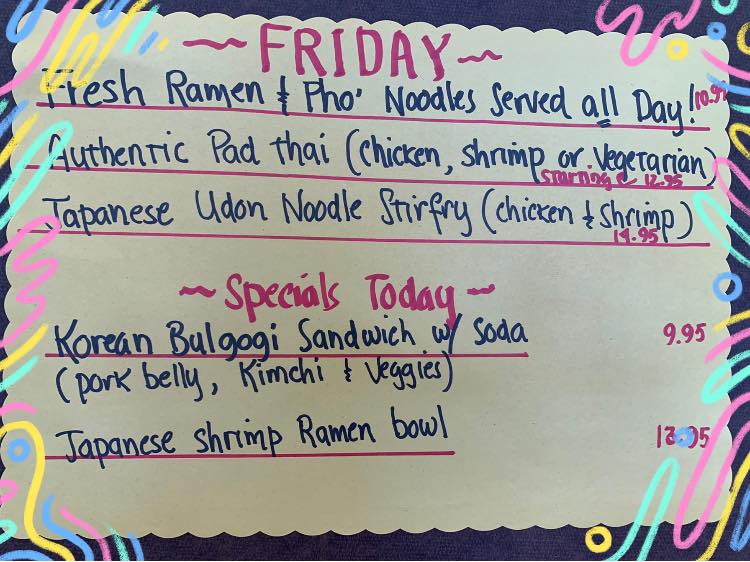 ~FRIDAY~
Fresh Ramen & Pho' Noodles Served all Day!
Authentic Pad thai (chicken, shrimp or vegetarian)
starting @ 12.95
Japanese Udon Noodle Stirfry (chicken & shrimp)
14.95
~Specials Today~
Korean Bulgogi Sandwich w/ soda 9.95
(pork belly, Kimchi & Veggies)
Japanese shrimp Ramen bowl